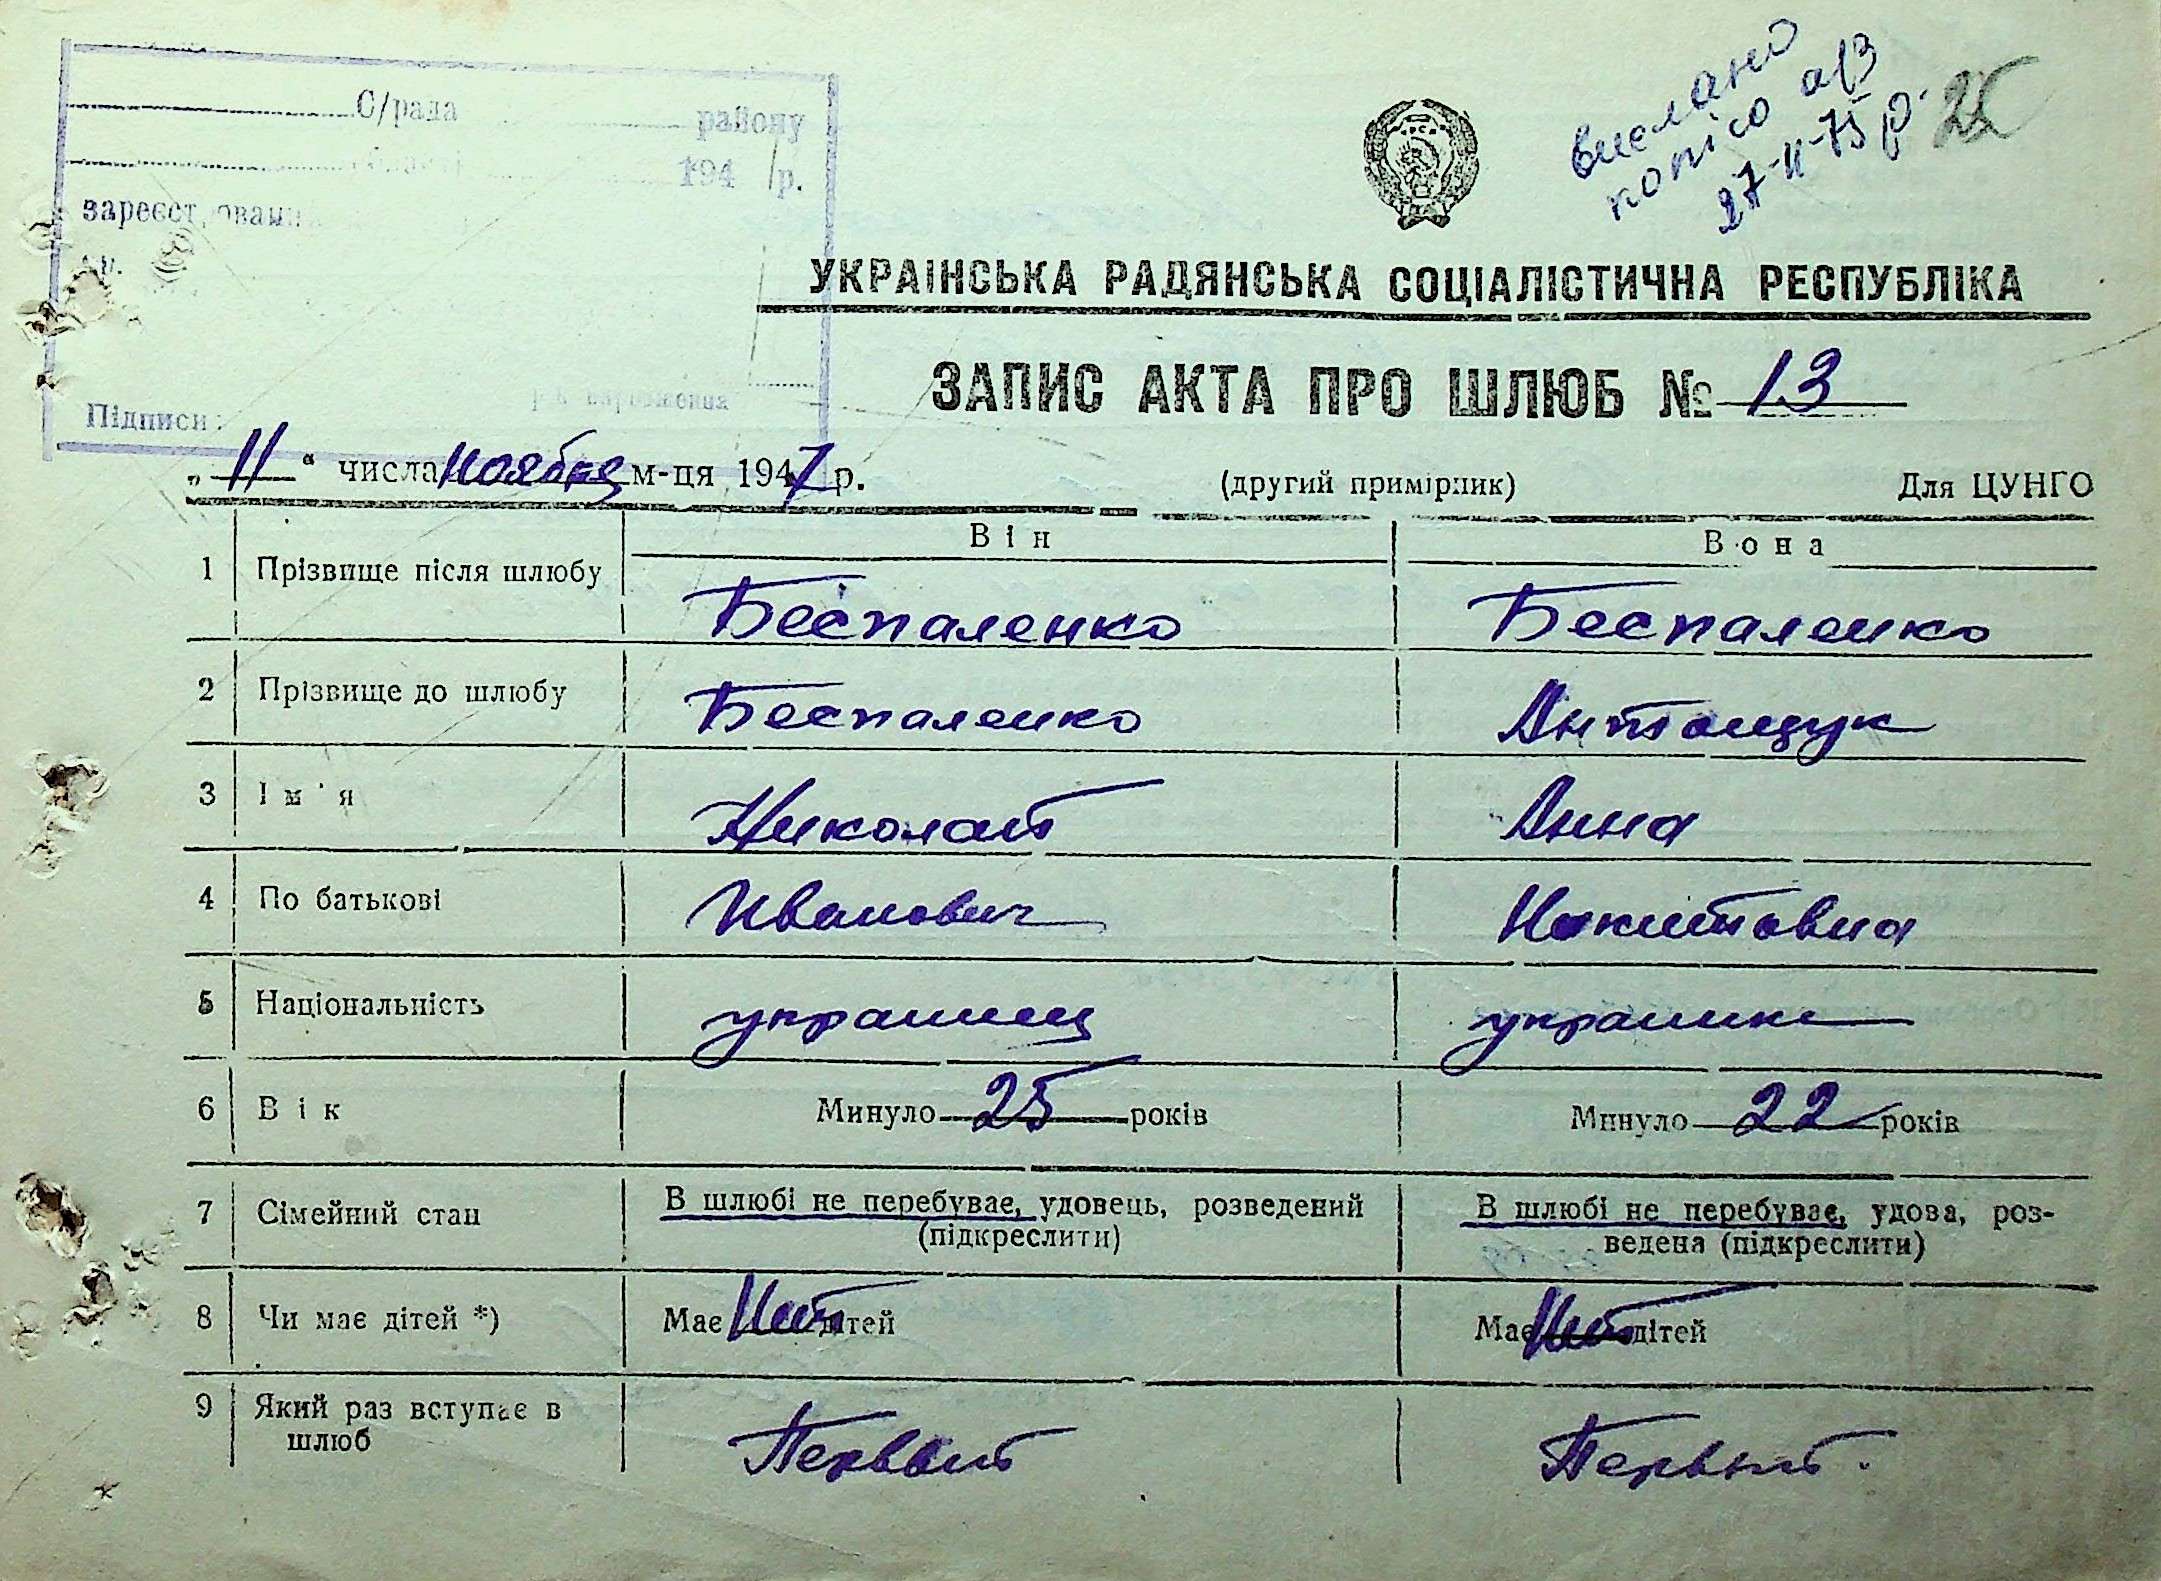 вислано
копію а/з
27-II-75 р.
25
С/рада району
194 р.
зареєстрован
Підписи:
УКРАЇНСЬКА РАДЯНСЬКА СОЦІАЛІСТИЧНА РЕСПУБЛІКА
ЗАПИС АКТА ПРО ШЛЮБ № 13
„11“ числа ноября м-ця 1947 р. (другий примірник) Для ЦУНГО
Він Вона
1 Прізвище після шлюбу Беспаленко Беспаленко
2 Прізвище до шлюбу Беспаленко Антощук
3 Ім'я Николай Анна
4 По батькові Иванович Никитовна
5 Національність украинец украинка
6 Вік Минуло 25 років Минуло 22 років
7 Сімейний стан В шлюбі не перебуває, удовець, розведений В шлюбі не перебуває, удова, роз-
(підкреслити) ведена (підкреслити)
8 Чи має дітей *) Має Нет дітей Має Нет дітей
9 Який раз вступає в
шлюб Первый Первый.